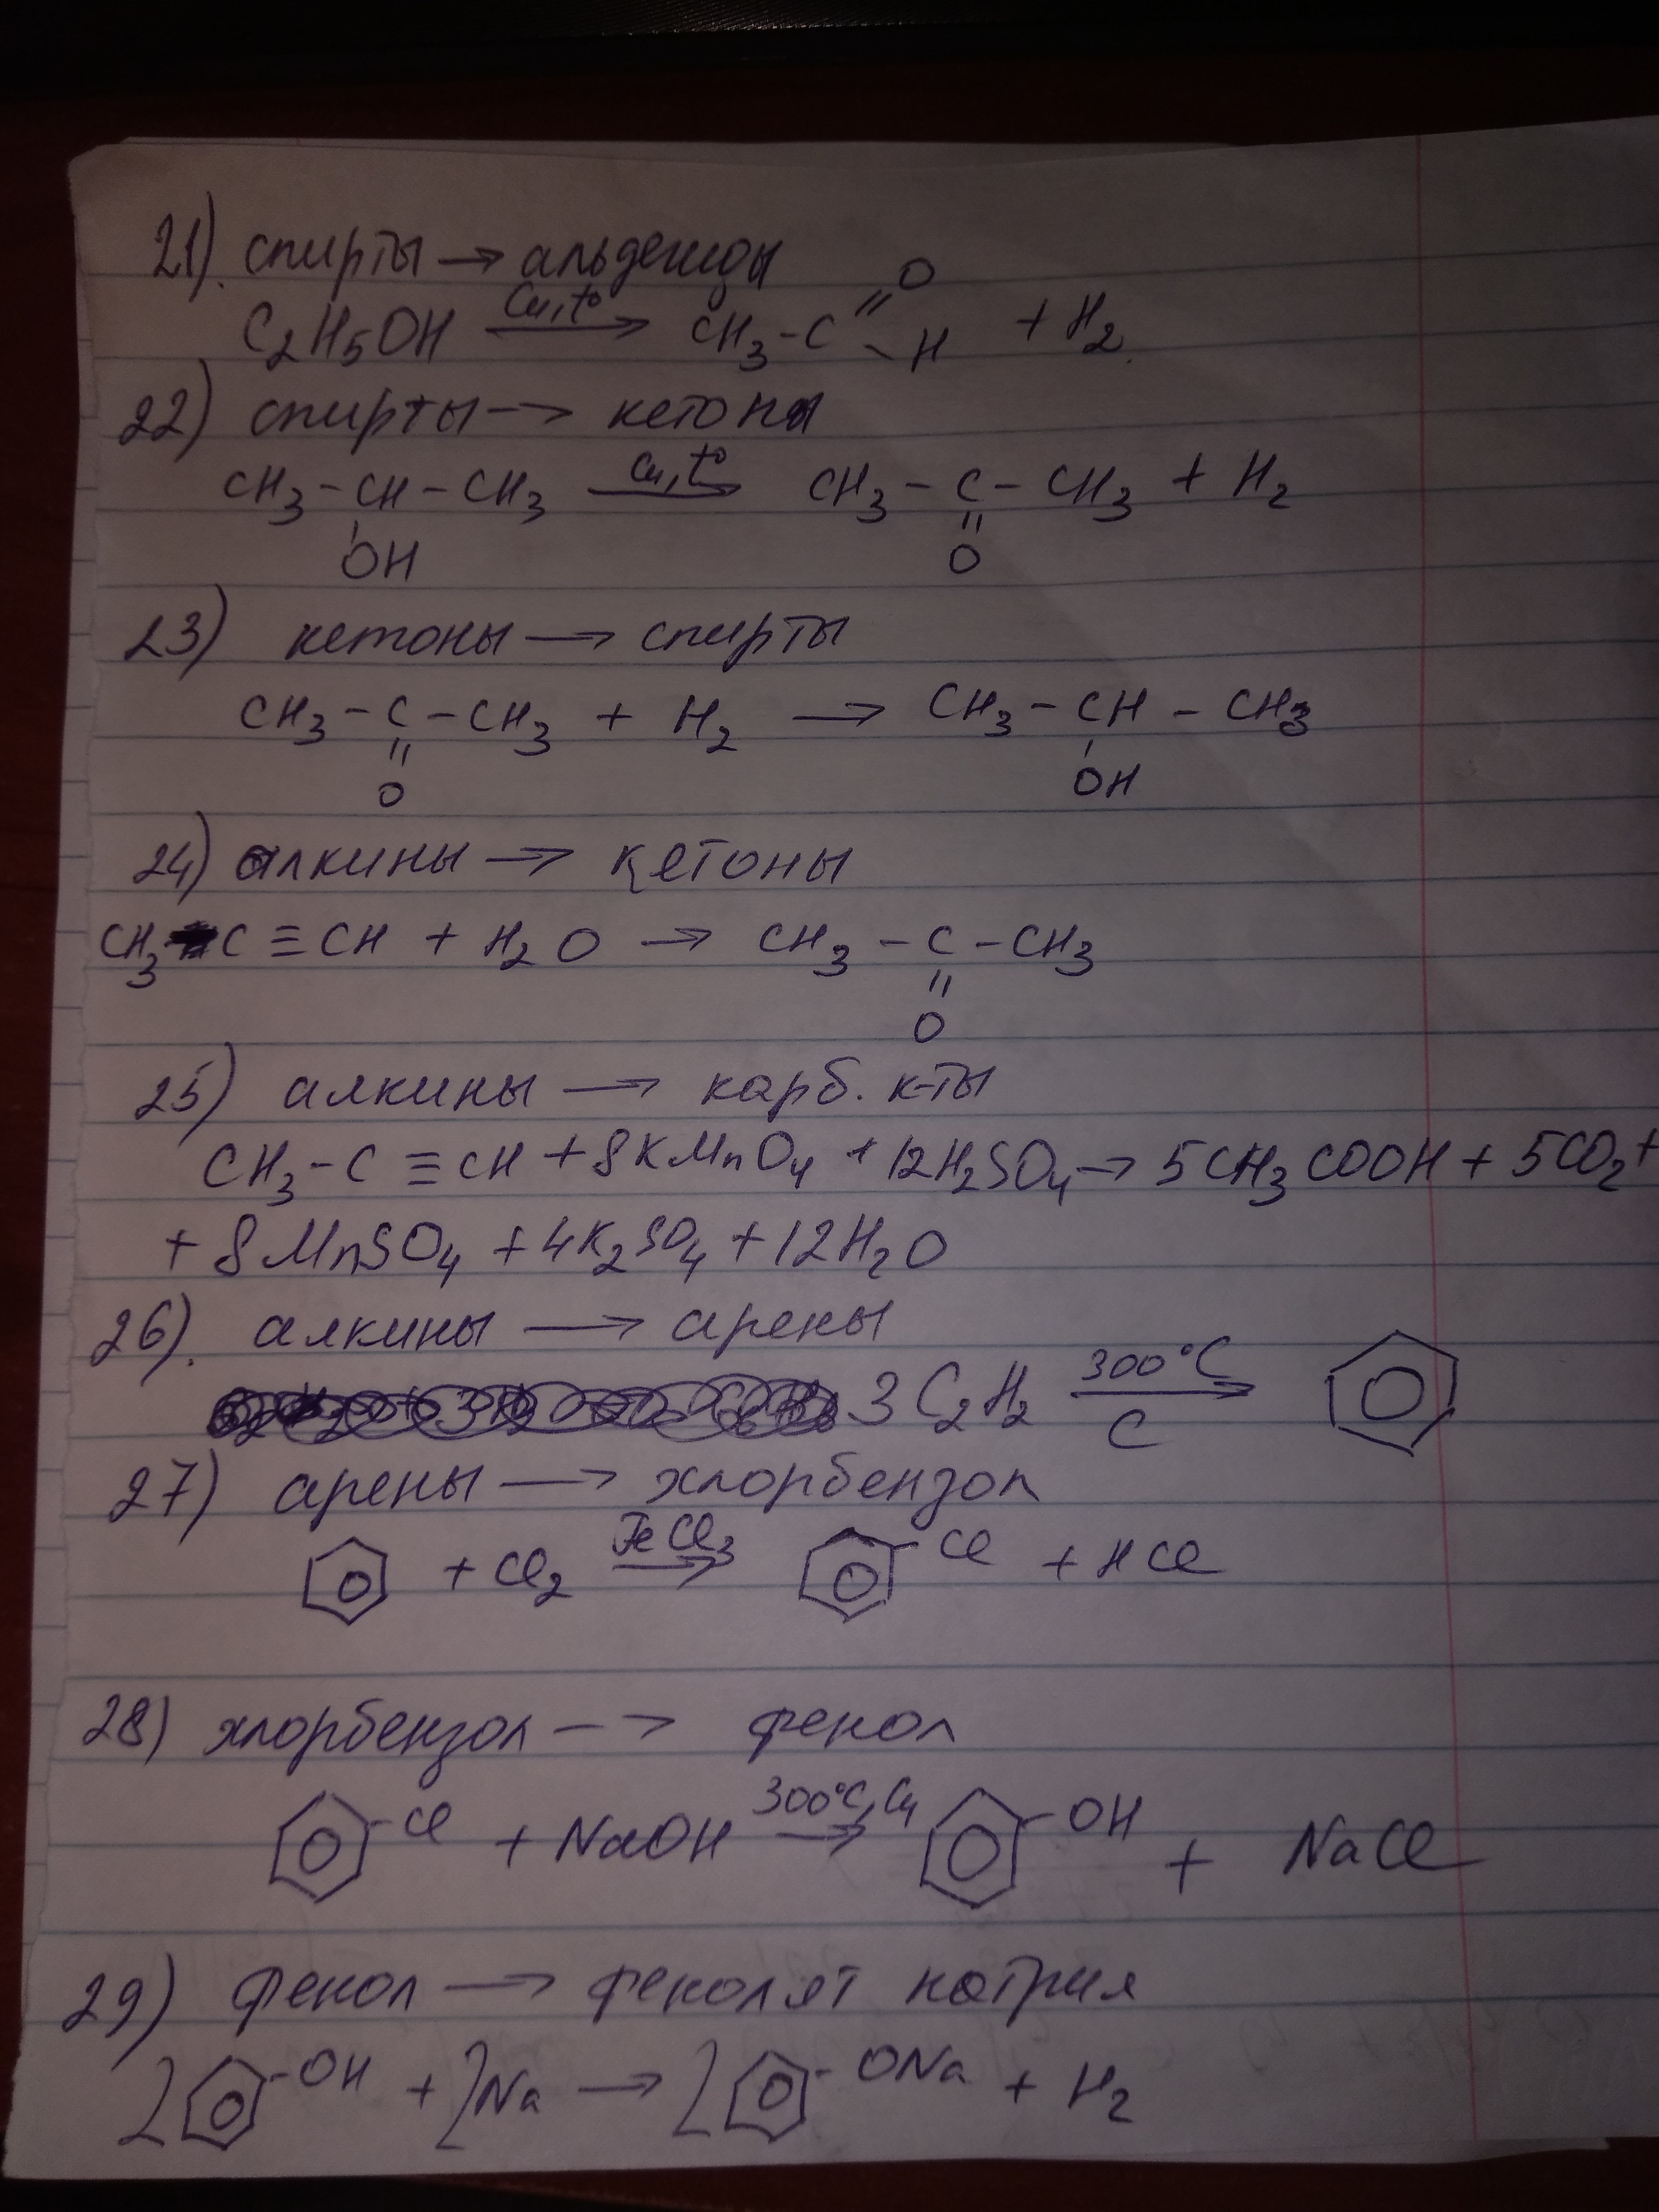 21) спирты → альдегиды
C₂H₅OH —Cu, t°→ CH₃-C(=O)-H + H₂
22) спирты → кетоны
CH₃-CH(OH)-CH₃ —Cu, t°→ CH₃-C(=O)-CH₃ + H₂
23) кетоны → спирты
CH₃-C(=O)-CH₃ + H₂ → CH₃-CH(OH)-CH₃
24) алкины → кетоны
CH₃-C≡CH + H₂O → CH₃-C(=O)-CH₃
25) алкины → карб. к-ты
CH₃-C≡CH + 8KMnO₄ + 12H₂SO₄ → 5CH₃COOH + 5CO₂ +
+ 8MnSO₄ + 4K₂SO₄ + 12H₂O
26). алкины → арены
3C₂H₂ —300°C, C→
27) арены → хлорбензол
+ Cl₂ —FeCl₃→ -Cl + HCl
28) хлорбензол → фенол
-Cl + NaOH —300°C, Cu→ -OH + NaCl
29) фенол → фенолят натрия
2 -OH + 2Na → 2 -ONa + H₂